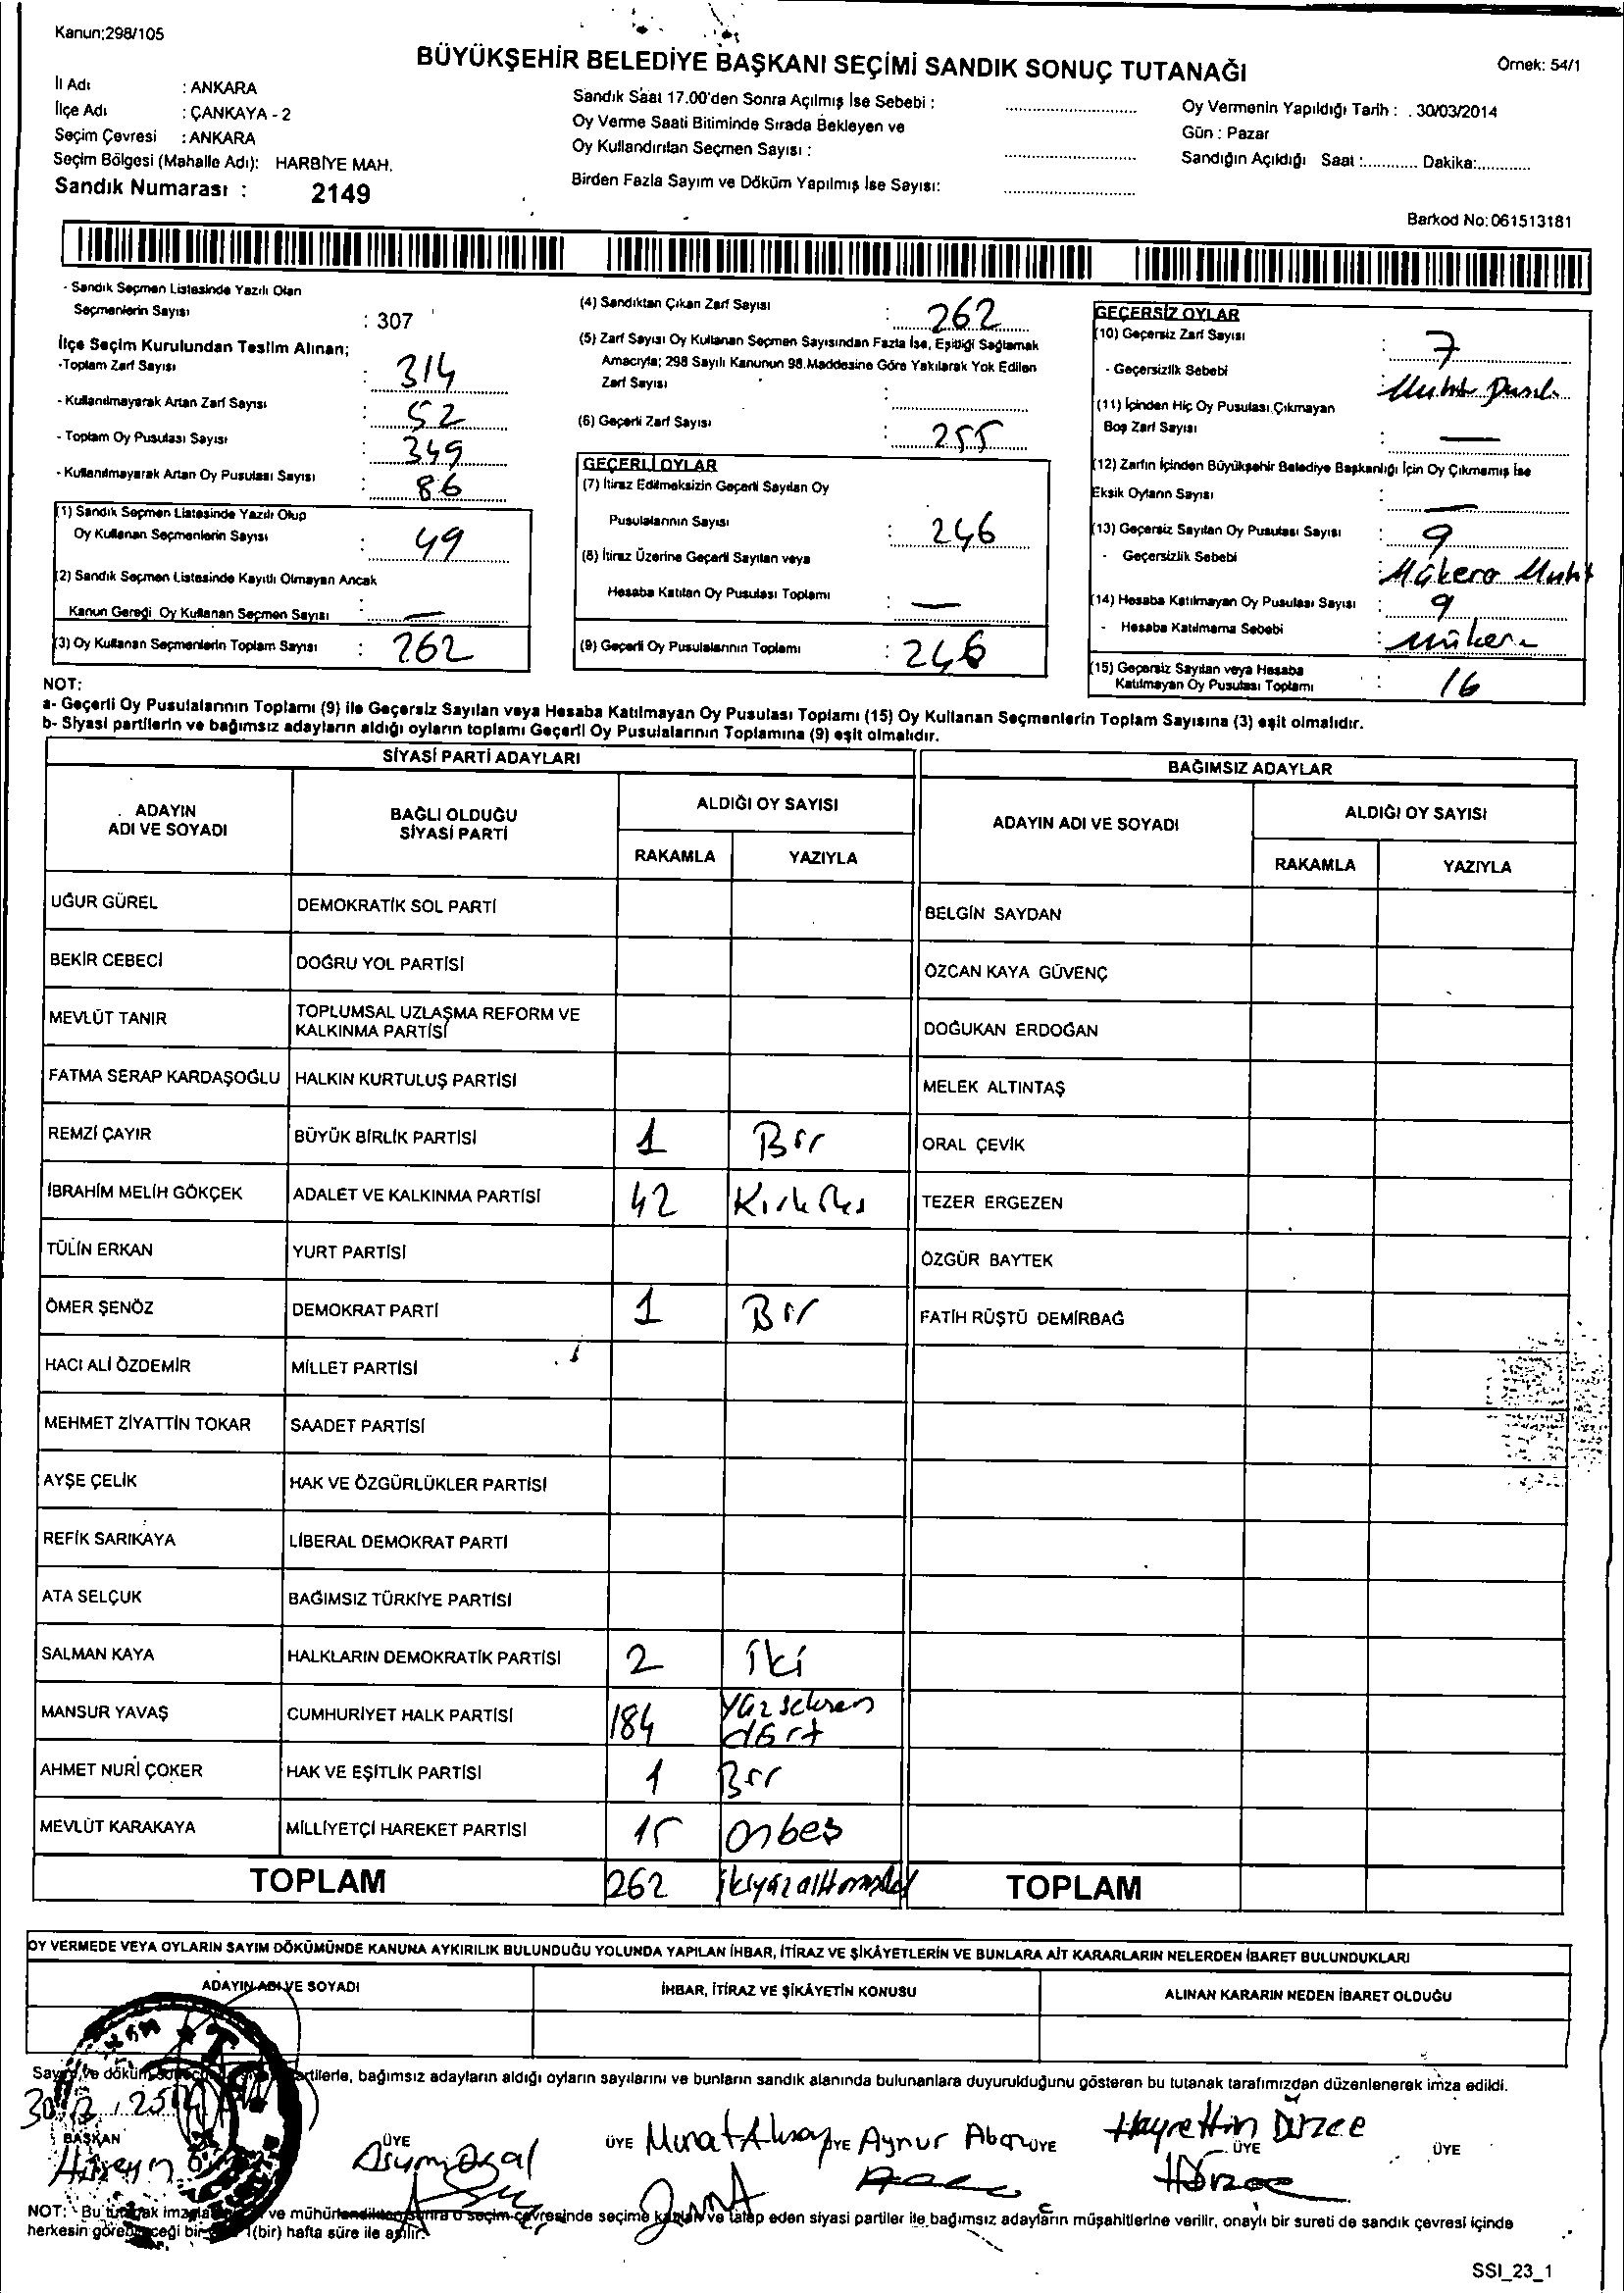 Kanun;298/105
BÜYÜKŞEHİR BELEDİYE BAŞKANI SEÇİMİ SANDIK SONUÇ TUTANAĞI
Örnek: 54/1
İl Adı : ANKARA
İlçe Adı : ÇANKAYA - 2
Seçim Çevresi : ANKARA
Seçim Bölgesi (Mahalle Adı): HARBİYE MAH.
Sandık Numarası : 2149
Sandık Saat 17.00'den Sonra Açılmış İse Sebebi :
Oy Verme Saati Bitiminde Sırada Bekleyen ve
Oy Kullandırılan Seçmen Sayısı :
Birden Fazla Sayım ve Döküm Yapılmış İse Sayısı:
Oy Vermenin Yapıldığı Tarih : . 30/03/2014
Gün : Pazar
Sandığın Açıldığı Saat :............ Dakika:............
Barkod No:061513181
- Sandık Seçmen Listesinde Yazılı Olan
Seçmenlerin Sayısı : 307
İlçe Seçim Kurulundan Teslim Alınan;
-Toplam Zarf Sayısı : 314
- Kullanılmayarak Artan Zarf Sayısı : 52
- Toplam Oy Pusulası Sayısı : 349
- Kullanılmayarak Artan Oy Pusulası Sayısı : 86
(1) Sandık Seçmen Listesinde Yazılı Olup
Oy Kullanan Seçmenlerin Sayısı : 49
(2) Sandık Seçmen Listesinde Kayıtlı Olmayan Ancak
Kanun Gereği Oy Kullanan Seçmen Sayısı : —
(3) Oy Kullanan Seçmenlerin Toplam Sayısı : 262
(4) Sandıktan Çıkan Zarf Sayısı : 262
(5) Zarf Sayısı Oy Kullanan Seçmen Sayısından Fazla İse, Eşitliği Sağlamak
Amacıyla; 298 Sayılı Kanunun 98.Maddesine Göre Yakılarak Yok Edilen
Zarf Sayısı :
(6) Geçerli Zarf Sayısı : 255
GEÇERLİ OYLAR
(7) İtiraz Edilmeksizin Geçerli Sayılan Oy
Pusulalarının Sayısı : 246
(8) İtiraz Üzerine Geçerli Sayılan veya
Hesaba Katılan Oy Pusulası Toplamı : —
(9) Geçerli Oy Pusulalarının Toplamı : 246
GEÇERSİZ OYLAR
(10) Geçersiz Zarf Sayısı : 7
- Geçersizlik Sebebi :
(11) İçinden Hiç Oy Pusulası Çıkmayan
Boş Zarf Sayısı : —
(12) Zarfın İçinden Büyükşehir Belediye Başkanlığı İçin Oy Çıkmamış İse
Eksik Oyların Sayısı : —
(13) Geçersiz Sayılan Oy Pusulası Sayısı : 9
- Geçersizlik Sebebi :
(14) Hesaba Katılmayan Oy Pusulası Sayısı : 9
- Hesaba Katılmama Sebebi :
(15) Geçersiz Sayılan veya Hesaba
Katılmayan Oy Pusulası Toplamı : 16
NOT:
a- Geçerli Oy Pusulalarının Toplamı (9) ile Geçersiz Sayılan veya Hesaba Katılmayan Oy Pusulası Toplamı (15) Oy Kullanan Seçmenlerin Toplam Sayısına (3) eşit olmalıdır.
b- Siyasi partilerin ve bağımsız adayların aldığı oyların toplamı Geçerli Oy Pusulalarının Toplamına (9) eşit olmalıdır.
SİYASİ PARTİ ADAYLARI
BAĞIMSIZ ADAYLAR
ADAYIN
ADI VE SOYADI
BAĞLI OLDUĞU
SİYASİ PARTİ
ALDIĞI OY SAYISI
RAKAMLA YAZIYLA
ADAYIN ADI VE SOYADI
ALDIĞI OY SAYISI
RAKAMLA YAZIYLA
UĞUR GÜREL DEMOKRATİK SOL PARTİ BELGİN SAYDAN
BEKİR CEBECİ DOĞRU YOL PARTİSİ ÖZCAN KAYA GÜVENÇ
MEVLÜT TANIR TOPLUMSAL UZLAŞMA REFORM VE
KALKINMA PARTİSİ DOĞUKAN ERDOĞAN
FATMA SERAP KARDAŞOĞLU HALKIN KURTULUŞ PARTİSİ MELEK ALTINTAŞ
REMZİ ÇAYIR BÜYÜK BİRLİK PARTİSİ 1 Bir ORAL ÇEVİK
İBRAHİM MELİH GÖKÇEK ADALET VE KALKINMA PARTİSİ 42 Kırkiki TEZER ERGEZEN
TÜLİN ERKAN YURT PARTİSİ ÖZGÜR BAYTEK
ÖMER ŞENÖZ DEMOKRAT PARTİ 1 Bir FATİH RÜŞTÜ DEMİRBAĞ
HACI ALİ ÖZDEMİR MİLLET PARTİSİ
MEHMET ZİYATTİN TOKAR SAADET PARTİSİ
AYŞE ÇELİK HAK VE ÖZGÜRLÜKLER PARTİSİ
REFİK SARIKAYA LİBERAL DEMOKRAT PARTİ
ATA SELÇUK BAĞIMSIZ TÜRKİYE PARTİSİ
SALMAN KAYA HALKLARIN DEMOKRATİK PARTİSİ 2 İki
MANSUR YAVAŞ CUMHURİYET HALK PARTİSİ 184 Yüzseksen
dört
AHMET NURİ ÇOKER HAK VE EŞİTLİK PARTİSİ 1 Bir
MEVLÜT KARAKAYA MİLLİYETÇİ HAREKET PARTİSİ 15 Onbeş
TOPLAM 262 İkiyüzaltmışiki TOPLAM
OY VERMEDE VEYA OYLARIN SAYIM DÖKÜMÜNDE KANUNA AYKIRILIK BULUNDUĞU YOLUNDA YAPILAN İHBAR, İTİRAZ VE ŞİKÂYETLERİN VE BUNLARA AİT KARARLARIN NELERDEN İBARET BULUNDUKLARI
ADAYIN ADI VE SOYADI İHBAR, İTİRAZ VE ŞİKÂYETİN KONUSU ALINAN KARARIN NEDEN İBARET OLDUĞU
Sayım ve döküm partilerle, bağımsız adayların aldığı oyların sayılarını ve bunların sandık alanında bulunanlara duyurulduğunu gösteren bu tutanak tarafımızdan düzenlenerek imza edildi.
BAŞKAN ÜYE ÜYE ÜYE ÜYE ÜYE
Hüseyin Murat Aynur Hayrettin Düzce
NOT: Bu tutanak ve mühürlendikten sonra o seçim çevresinde seçime katılan ve talep eden siyasi partiler ile bağımsız adayların müşahitlerine verilir, onaylı bir sureti de sandık çevresi içinde
herkesin görebileceği bir (bir) hafta süre ile asılır.
SSI_23_1